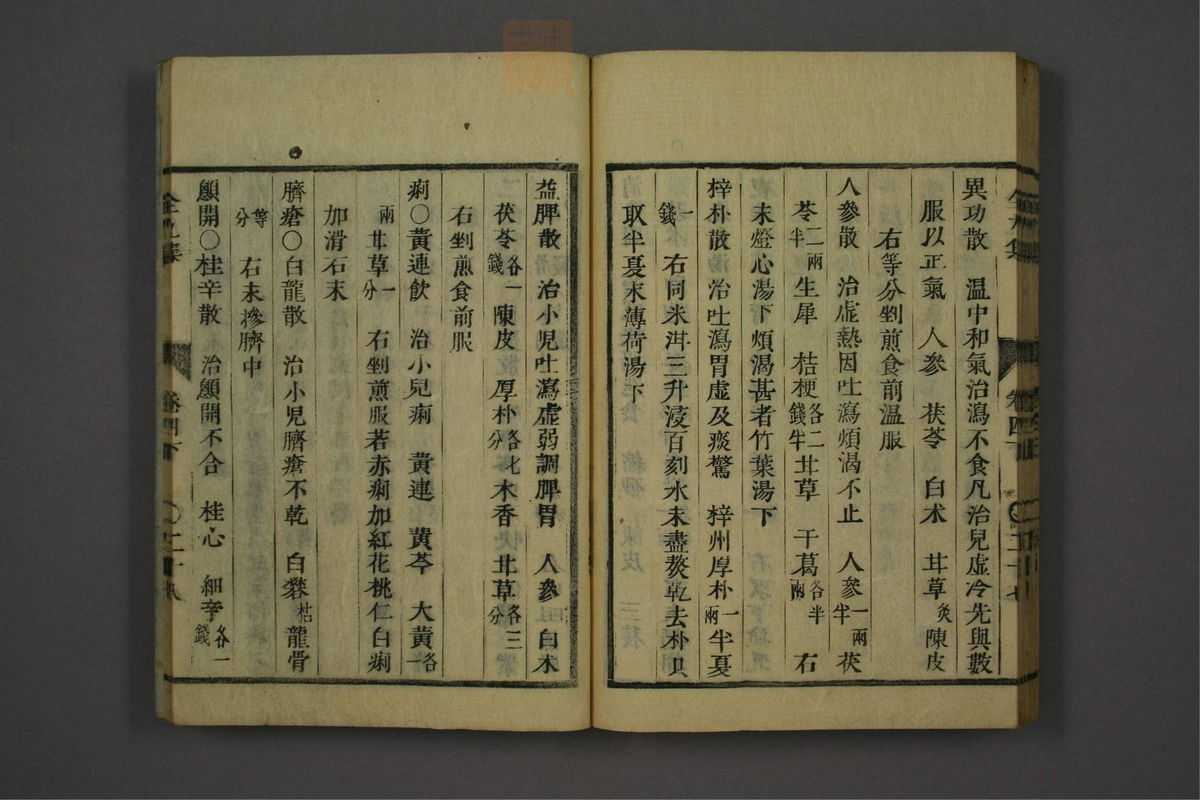 異功散　溫中和氣治瀉不食凡治兒虛冷先與數
服以正氣　人參　茯苓　白朮　甘草炙陳皮
右等分剉煎食前溫服
人參散　治虛熱因吐瀉煩渴不止　人參一兩半茯
苓二兩半生犀　桔梗各二錢半甘草　干葛各半兩　右
末燈心湯下煩渴甚者竹葉湯下
梓朴散　治吐瀉胃虛及痰驚　梓州厚朴一兩半夏
一錢　右同米泔三升浸百刻水未盡熬乾去朴只
取半夏末薄荷湯下
益脾散　治小兒吐瀉虛弱調脾胃　人參　白朮
茯苓各一錢　陳皮　厚朴各七分木香　甘草各三分
右剉煎食前服
痢〇黃連飲　治小兒痢　黃連　黃芩　大黃各一
兩　甘草一分　右剉煎服若赤痢加紅花桃仁白痢
加滑石末
臍瘡〇白龍散　治小兒臍瘡不乾　白礬枯龍骨
等分　右末摻臍中
顖開〇桂辛散　治顖開不合　桂心　細辛各一錢
卷四下
二十八
卷四下
二十七